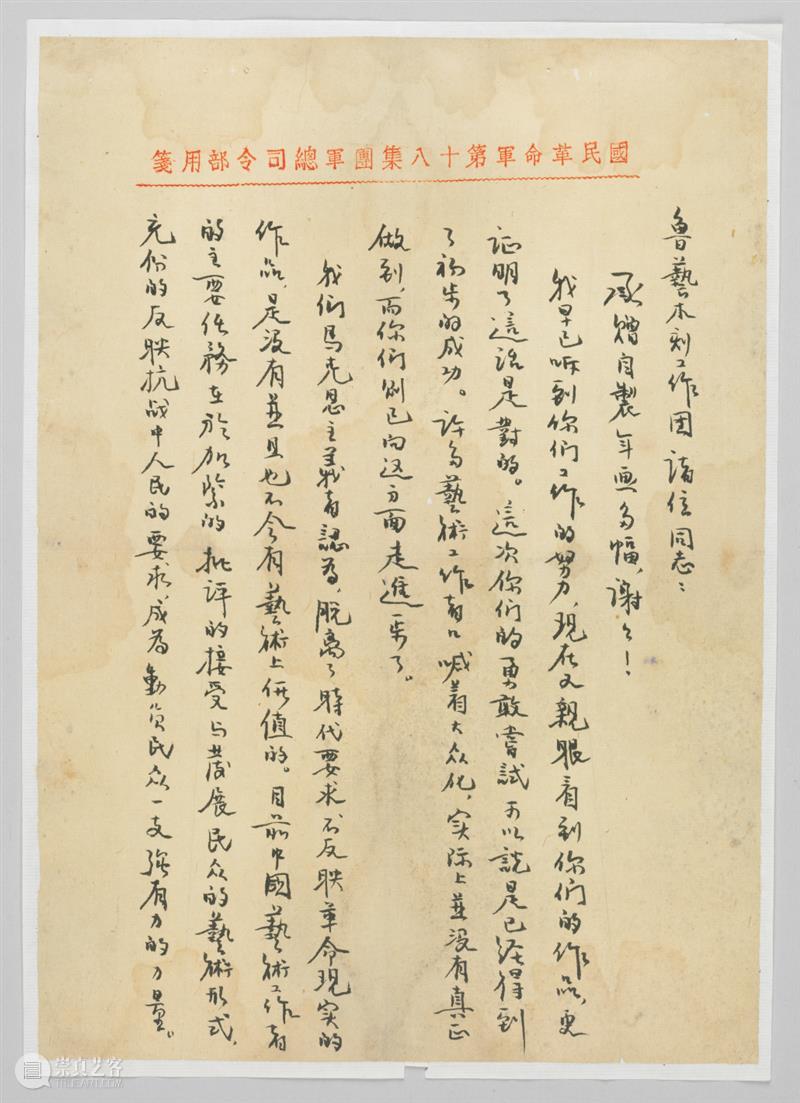 國民革命軍第十八集團軍總司令部用箋
魯藝木刻工作团諸位同志：
承贈自製年画多幅，謝々！
我早已听到你们工作的努力，現在又親眼看到你们的作品，更
証明了這話是對的。這次你们的勇敢嘗試可以說是已经得到
了初步的成功。許多藝術工作者口喊着大众化，实际上並没有真正
做到，而你们則已向这方面走進一步了。
我们馬克思主義者認為，脫離了時代要求不反映革命現实的
作品，是没有並且也不会有藝術上价值的。目前中國藝術工作者
的主要任務在於加緊的批評的接受与發展民众的藝術形式，
充份的反映抗战中人民的要求，成為動員民众一支強有力的力量。
崇真艺客
TRUEART.COM